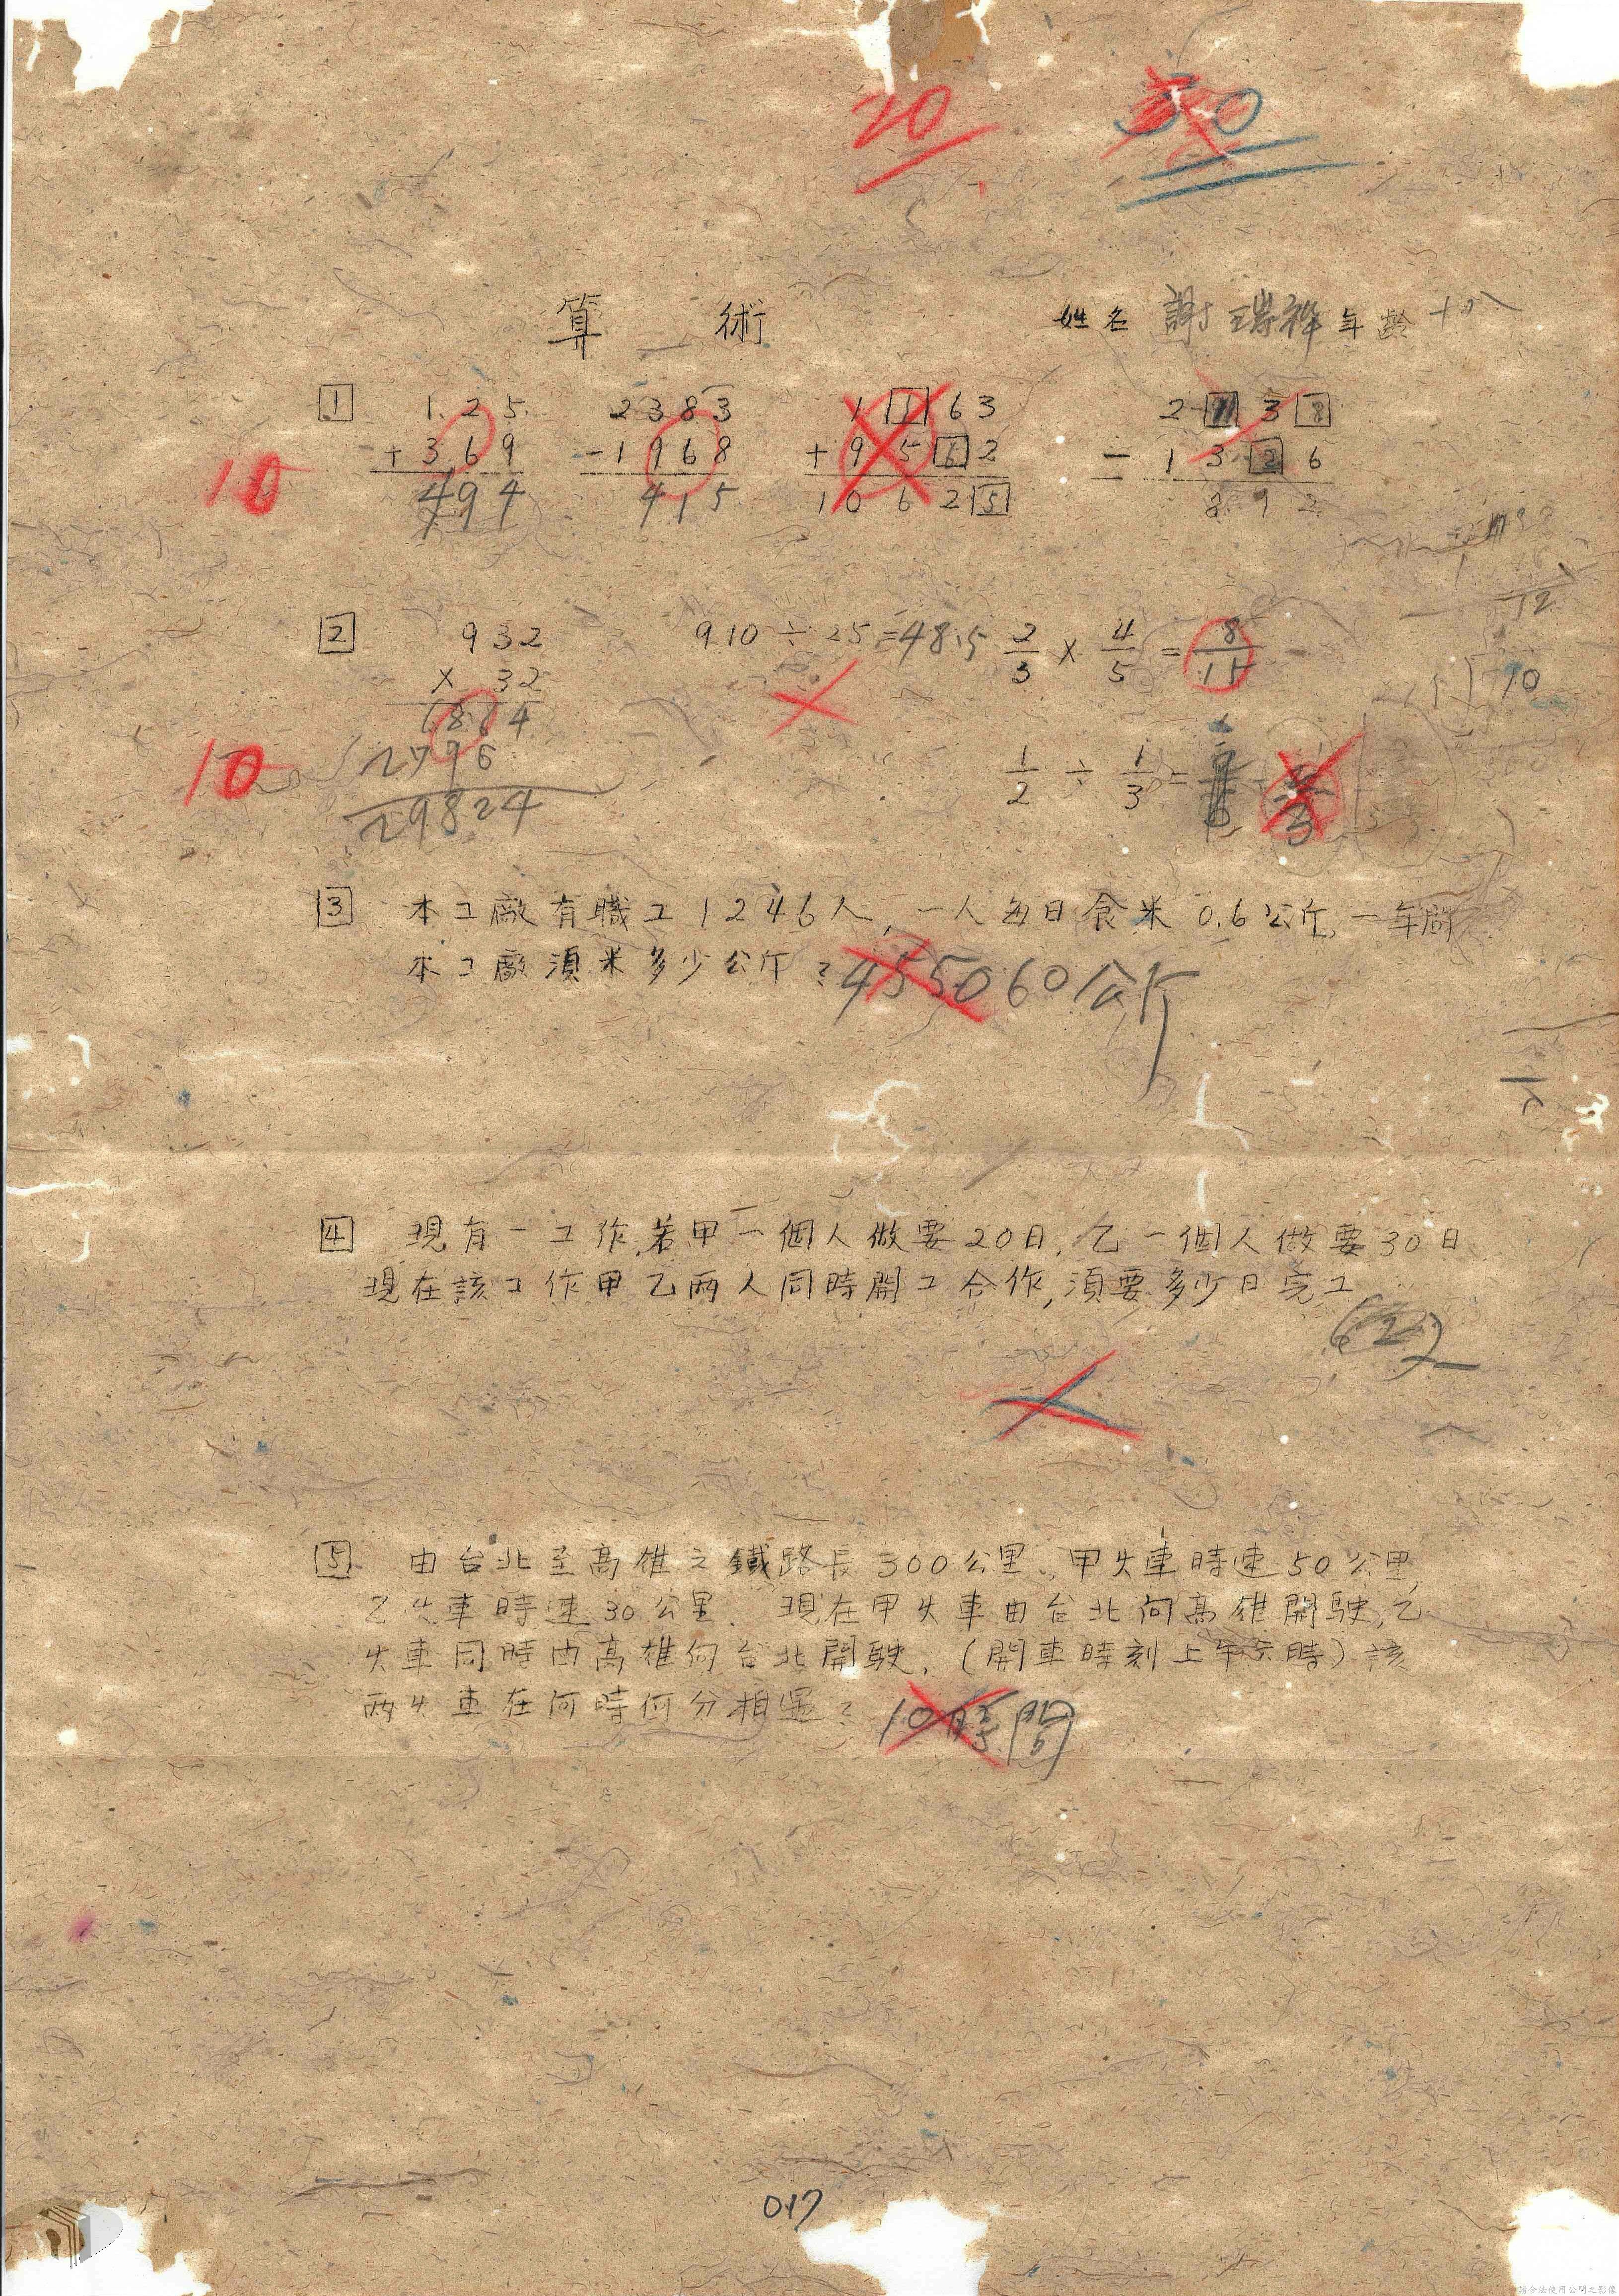 20 50
算 術 姓名 謝瑞祥 年齡 十八
10
1 125 2383 1 1 63 2 3 8
+ 369 - 1968 + 9 5 6 2 - 1 3 2 6
494 415 1 0 6 2 5 8 9 2
12
2 932 910 ÷ 25 = 48.5 2/3 × 4/5 = 8/15
× 32
1864
10
2796
1/2 ÷ 1/3 =
29824
10
3 本工廠有職工1246人,一人每日食米0.6公斤,一年間
本工廠須米多少公斤? 455060公斤
4 現有一工作,若甲一個人做要20日,乙一個人做要30日
現在該工作甲乙兩人同時開工合作,須要多少日完工
5 由台北至高雄之鐵路長300公里,甲火車時速50公里,
乙火車時速30公里. 現在甲火車由台北向高雄開駛,乙
火車同時由高雄向台北開駛,(開車時刻上午六時)該
兩火車在何時何分相遇? 10時間
017
請合法使用公開之影像